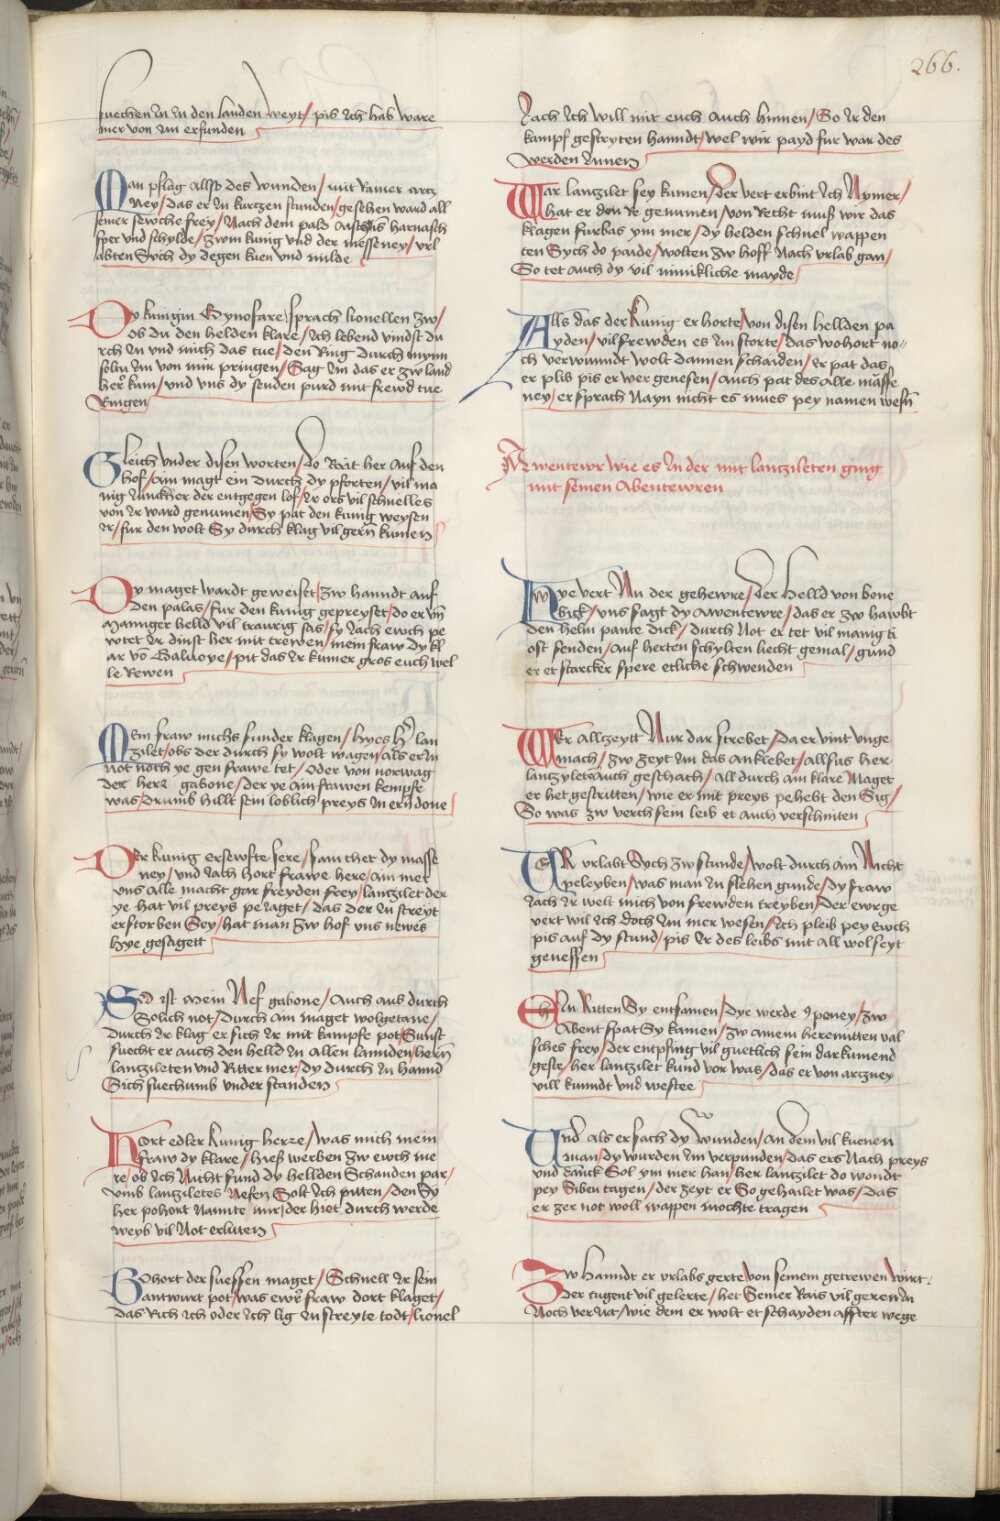 266.
suechen Jn Jn den landen weyt / pis Jch hab ware
mer von Jm erfunden
Man pflag allso des wunden / mit rainer artz
ney / das er Jn kurtzen stunden / gesehen ward all
seiner seroche frey / Nach dem pald harnasch
sper vnd schylde / zwm kunig vnd der messeney / vrl
abten Sych dy degen kuen vnd milde
Dy kunigin Gynofare / sprach lionellen zw /
ob du den helden klare / Jch lebend vindst du
rch Jn vnd mich das tue / den Ring durch mynn
soltu Jm von mir pringen / Sag Jm das er zw land
her kum / vnd vns dy senden purd mit frewd tue
Ringen
Gleich vnder disen worten / do Rait her auf den
hof / ain magt ein durch dy pforten / vil ma
nig Junckher der entgegen lof / Jr ors vil schnelles
von Jr ward genumen / Sy pat den kunig weysen
Jr / fur den wolt Sy durch klag vil gern kumen
Dy maget wardt geweiset / zw hanndt auf
den palas / fur den kunig gepreyset / do er vn
manniger helld vil traurig sas / sy Jach ewch pe
wtet Jr dinst her mit trewen / mein fraw dy kl
ar vo Galuoye / pit das Jr kumer gros euch wel
le Rewen
Mein fraw michs sunder klagen / hyes h lan
zilet / obs der durch sy wolt wagen / als er Jn
not noch ye gen frawe tet / Oder von norwag
der herr gabone / der ye ain frawen kempfe
was / drumb hillt sein loblich preys Jn ern done
Der kunig ersewfte sere / sam thet dy masse
ney / vnd Jach hort frawe here / ain mer
vns alle macht gar freyden frey / lantzilet der
ye hat vil preys peJaget / das der Jn streyt
erstorben Sey / hat man zw hof vns newes
hye gesagett
So ist mein Nef gabone / Auch aus durch
Solich not / durch ain maget wolgetane /
durch Jr klag er sich Jr mit kampfe pot / Sunst
suecht er auch den helld Jn allen lannden / hern
lantzileten vnd Ritter mer / dy durch Jn hannd
Sich suechumb vnder standen
Hort edler kunig herre / was mich mein
fraw dy klare / hies werben zw ewch me
re / ob Jch Nicht fund dy hellden Schanden par /
vmb lantziletes Nefen Solt Jch pitten / den Sy
her pohort Nannte mir / der hiet durch werde
weyb vil Not erlitten
Bohort der suessen maget / Schnell Jr sein
antwurt pot / was ewr fraw dort klaget /
das Rich Jch oder Jch lig Jn streyte todt / lionel
Jach Jch will mit euch auch hinnen / So Jr den
kampf gestryten hanndt / wel wir payd fur war des
werden Jnnen
War lantzilet sey kumen / der vert erbint Jch Nymer /
hat er den Re genumen / von Recht muß wir das
klagen furbas ym mer / dy helden schnel wappen
ten Sych do paide / wolten zw hoff Nach vrlab gan /
So tet auch dy vil minikliche mayde
Alls das der kunig er horte / von disen hellden pa
yden / vil frewden es Jm storte / das wohort no
ch verwunndt wolt dannen schaiden / er pat das
er plib pis er wer genesen / Auch pat des alle masse
ney / er sprach Nayn nicht es mues pey namen wesn
Awentewr wie es Jn der mit lantzileten ging
mit seinen Abentewren
Hye vert Jn der gehewre / der Helld von bone
gick / vns sagt dy awentewre / das er zw hawbt
den helm pante dick / durch Not er tet vil manig ti
ost senden / auf herten schylten liecht gemal / gund
er et starcker spere etliche schwenden
Wer allzeytt Nur dar strebet / da er vint vnge
mach / zw zeyt Jm das anklebet / allsus her
lantzylet auch geschach / all durch ain klare Maget
er het gestritten / wie er mit preys pehebt den Sig /
So was zw verch sein leib et auch verschniten
ER vrlabt Sych zw stunde / wolt durch ain Nicht
peleyben / was man Jn flehen gunde / dy fraw
Jach Jr welt mich von frewden treyben / der ewrge
vert wil ich doch Jm mer wesen / Jch pleib pey ewch
pis auf dy stund / pis Jr des leibs mit all wolseyt
genessen
Ain Ritten Sy entsamen / dye werde 9poney / zw
Abent spat Sy kamen / zw ainem heremitten val
sches frey / der entpfing vil guetlich sein dar kumend
geste / her lantzilet kund vor was / das er von artzney
vill kunndt vnd westee
Und als er sach dy wunden / an dem vil kuenen
man / dy wurden Jm verpunden / das ers Nach preys
vnd danck Sol ym mer han / her lantzilet do wondt
pey Siben tagen / der zeyt er So gehailet was / das
er zer not woll wappen mochte tragen
Zw hanndt er vrlabs gerte / von seinem getrewen wirt.
der tugent vil gelerte / het Seiner Rais vil geren Jn
Noch verirt / wie dem er wolt et schayden affter wege